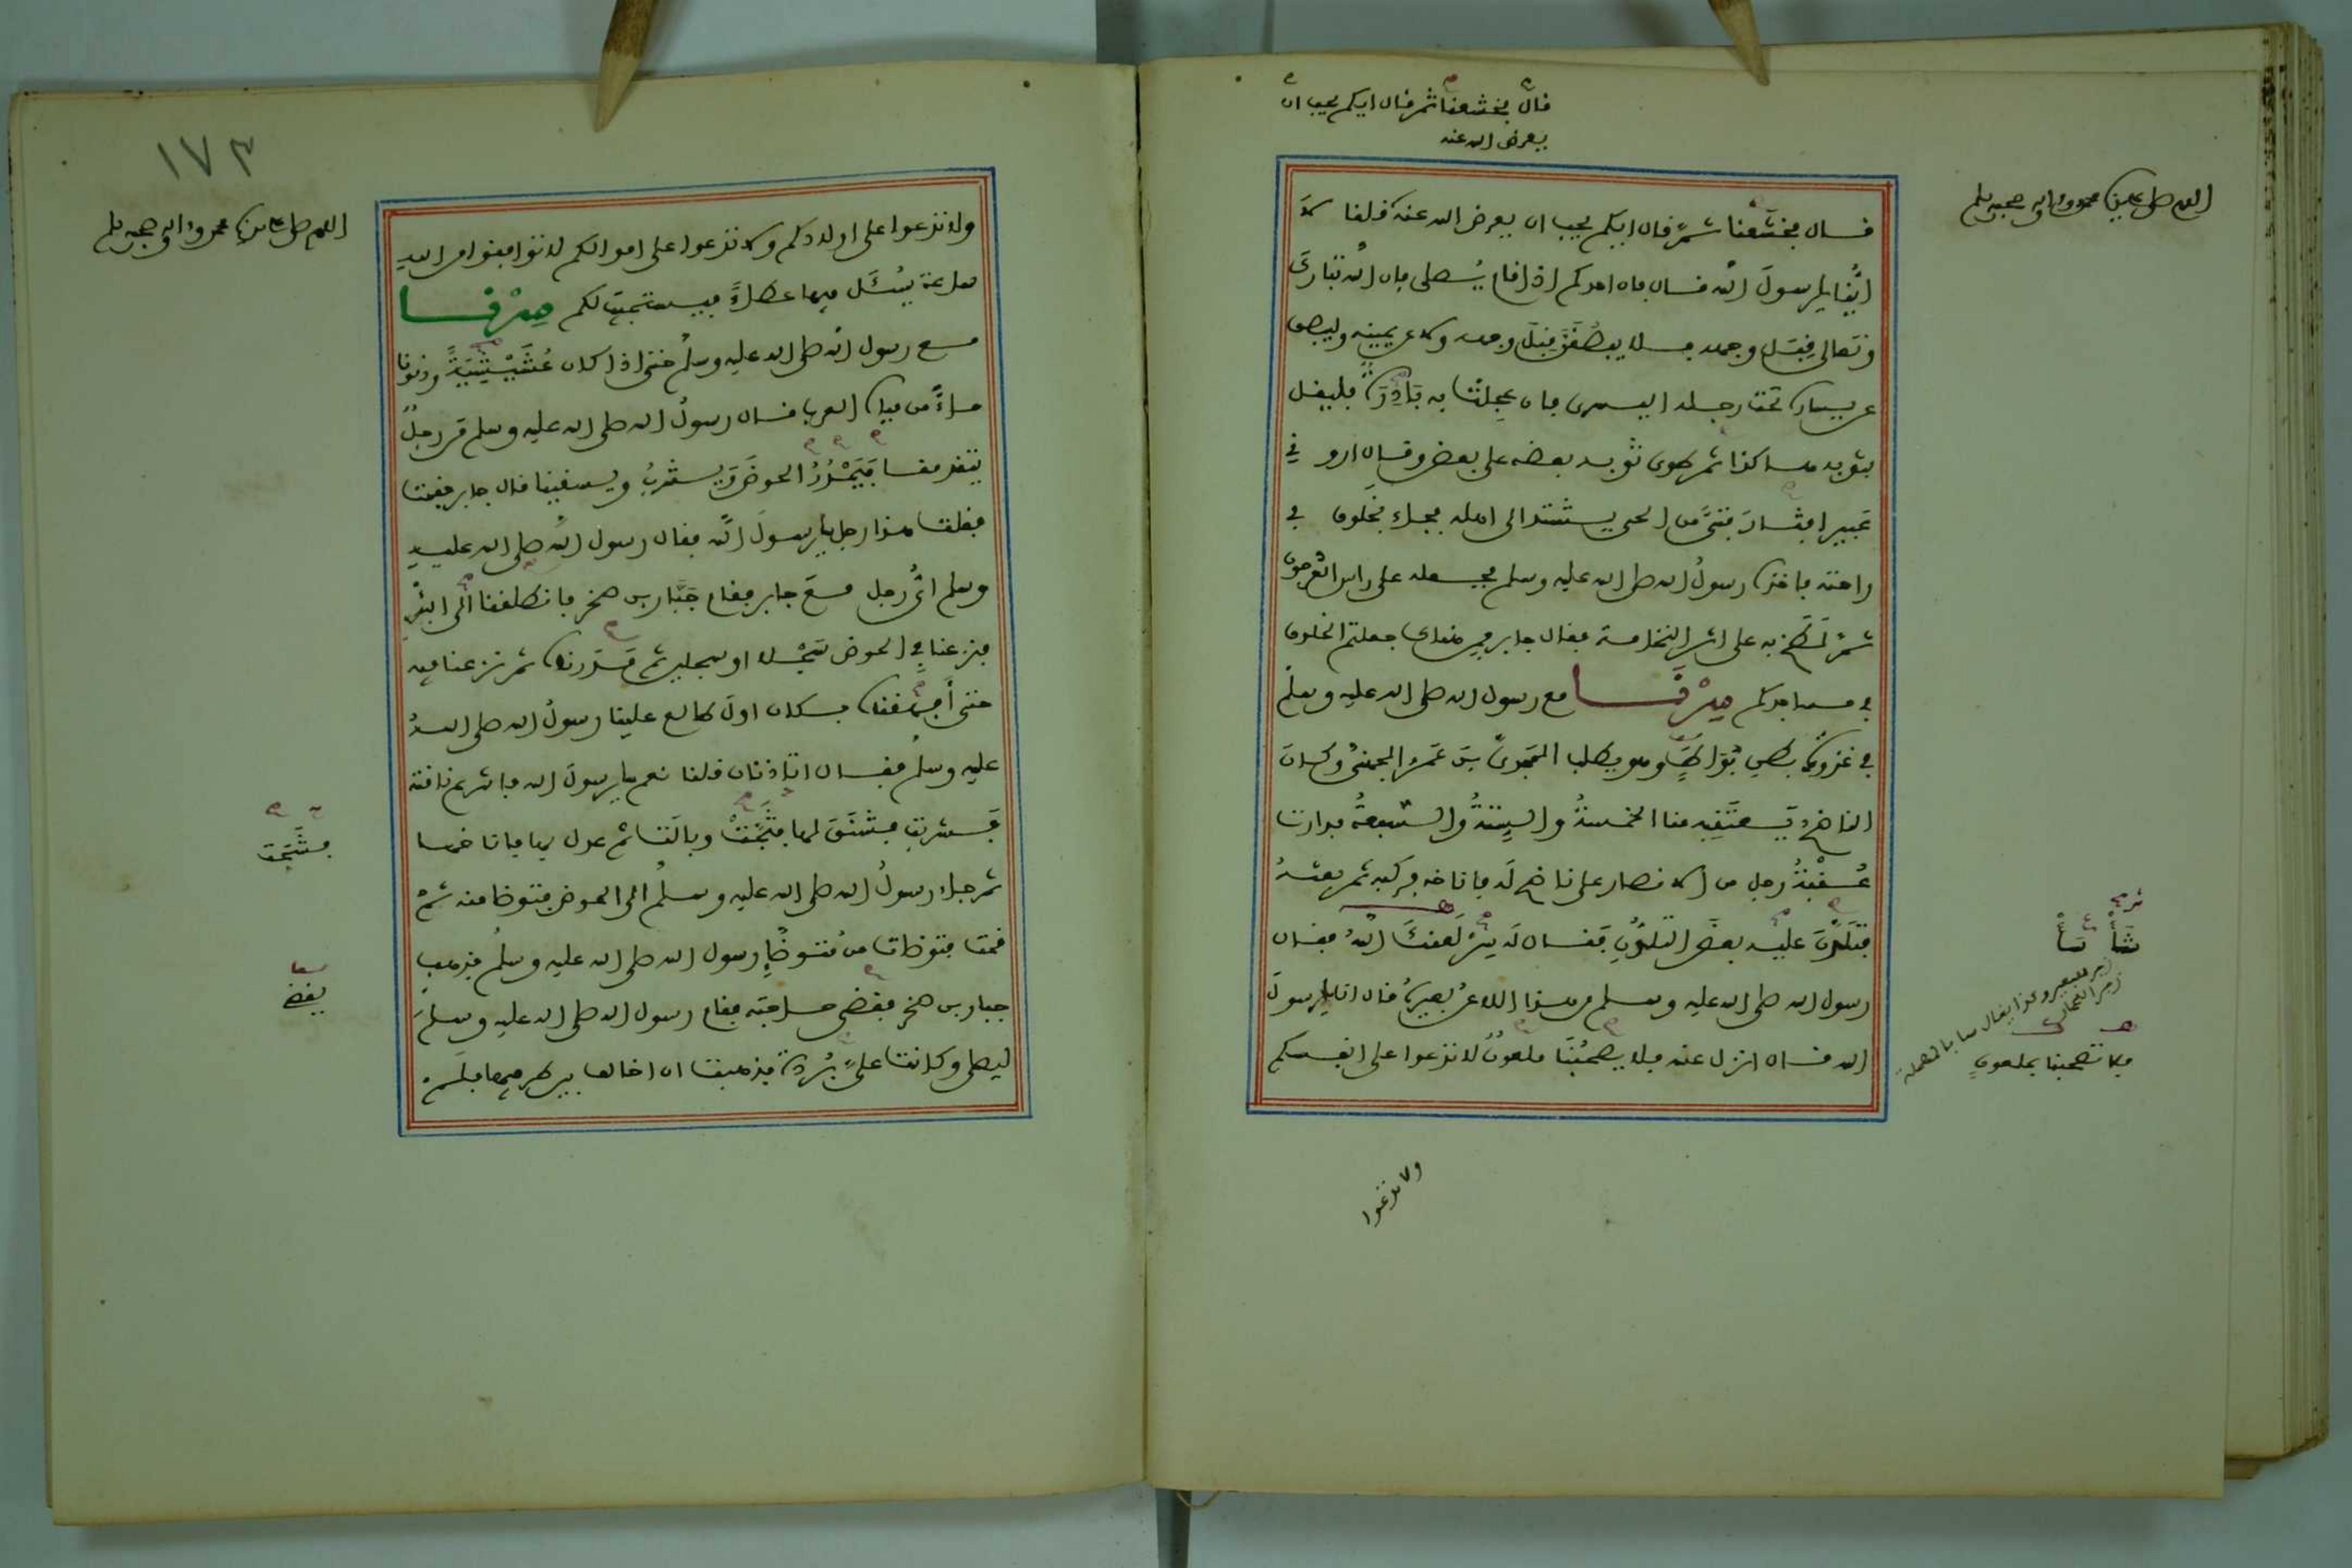 قال فخشعنا ثم قال ايكم يحب ان
يعرض الله عنه
اللهم صل على سيدنا محمد وءاله وصحبه وسلم
قال فخشعنا ثم قال ايكم يحب ان يعرض الله عنه قلنا لا
أيُّنا يا رسول الله قال فان احدكم اذا قام يُصلي فان الله تبارك
وتعالى قِبَل وجهه فلا يبصقن قبل وجهه ولا عن يمينه وليبصق
عن يساره تحت رجله اليسرى فان عجلت به بَادِرَة فليقل
بثوبه هاكذا ثم طوى ثوبه بعضه على بعض وقال اروني
عَبيرا فثار فتًى من الحي يشتد الى اهله فجاء بخلوق في
راحته فاخذه رسول الله صلى الله عليه وسلم فجعله على راس العرجون
ثم لَطَخ به على اثر النخامة فقال جابر فمن هناك جعلتم الخلوق
في مساجدكم سِرْنَا مع رسول الله صلى الله عليه وسلم
في غزوة بطن بُوَاطٍ وهو يطلب المَجْدِيّ بن عَمْرو الجهني وكان
الناضح يَعتقبه منا الخمسةُ والستةُ والسبعةُ فدارت
عُقْبَةُ رجل من الانصار على ناضح له فاناخه فركبه ثم بعثه
فتَلَدَّنَ عليه بعضَ التلدُّنِ فقال له شَأْ لَعَنَكَ اللهُ فقال
رسول الله صلى الله عليه وسلم من هذا اللاعن بعيرَهُ قال انا يا رسول
الله قال انزل عنه فلا يصحبْنا ملعون لا تدعوا على انفسكم
شَأْ سَأْ
زجر للبعير وكذا يقال سا بالمهملة
فلا تصحبنا بملعون
ولا تدعوا
١٧٣
اللهم صل على سيدنا محمد وءاله وصحبه وسلم
ولا تدعوا على اولادكم ولا تدعوا على اموالكم لا توافقوا من الله
ساعة يُسْئَل فيها عطاءٌ فيستجيب لكم سِرْنَا
مع رسول الله صلى الله عليه وسلم حتى اذا كان عُشَيْشِيَةٌ ودنونا
ماءً من مياه العرب قال رسول الله صلى الله عليه وسلم من رجلٌ
يتقدمنا فَيَمْدُرُ الحوضَ وَيشربُ ويسقينا قال جابر فقمت
فقلت هذا رجل يا رسولَ الله فقال رسول الله صلى الله عليه
وسلم ايُّ رجل مع جابر فقام جَبَّار بن صخر فانطلقنا الى البئر
فنزعنا في الحوض سَجْلا او سجلين ثم مَدَرْناه ثم نزعنا فيه
حتى أفهقناه فكان اولَ طالع علينا رسولُ الله صلى الله
عليه وسلم فقال اتاذنان قلنا نعم يا رسول الله فاشرع ناقته
فشربت فشنَقَ لها فَشَجَتْ وبالَت ثم عدل بها فاناخها
ثم جاء رسولُ الله صلى الله عليه وسلم الى الحوض فتوضا منه ثم
قمت فتوضات من مُتَوضَّإِ رسول الله صلى الله عليه وسلم فذهب
جبار بن صخر فقضى حاجته فقام رسول الله صلى الله عليه وسلم
ليصلي وكانت عليَّ بُرْدة فذهبت ان اخالف بين طرفيها فلم
فشَجَت
يقضي